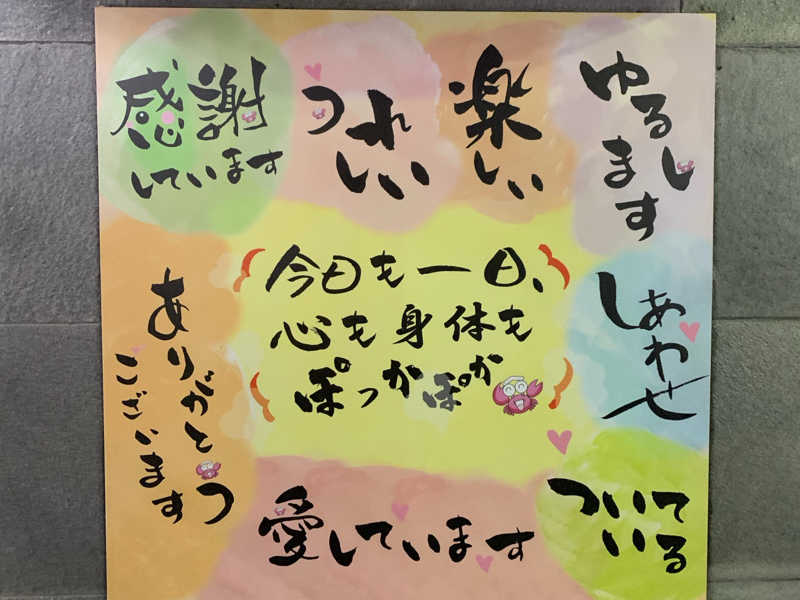 感謝
しています
うれしい
楽しい
ゆるします
今日も一日、
心も身体も
ぽっかぽか
しあわせ
ありがとう
ございます
愛しています
ついている